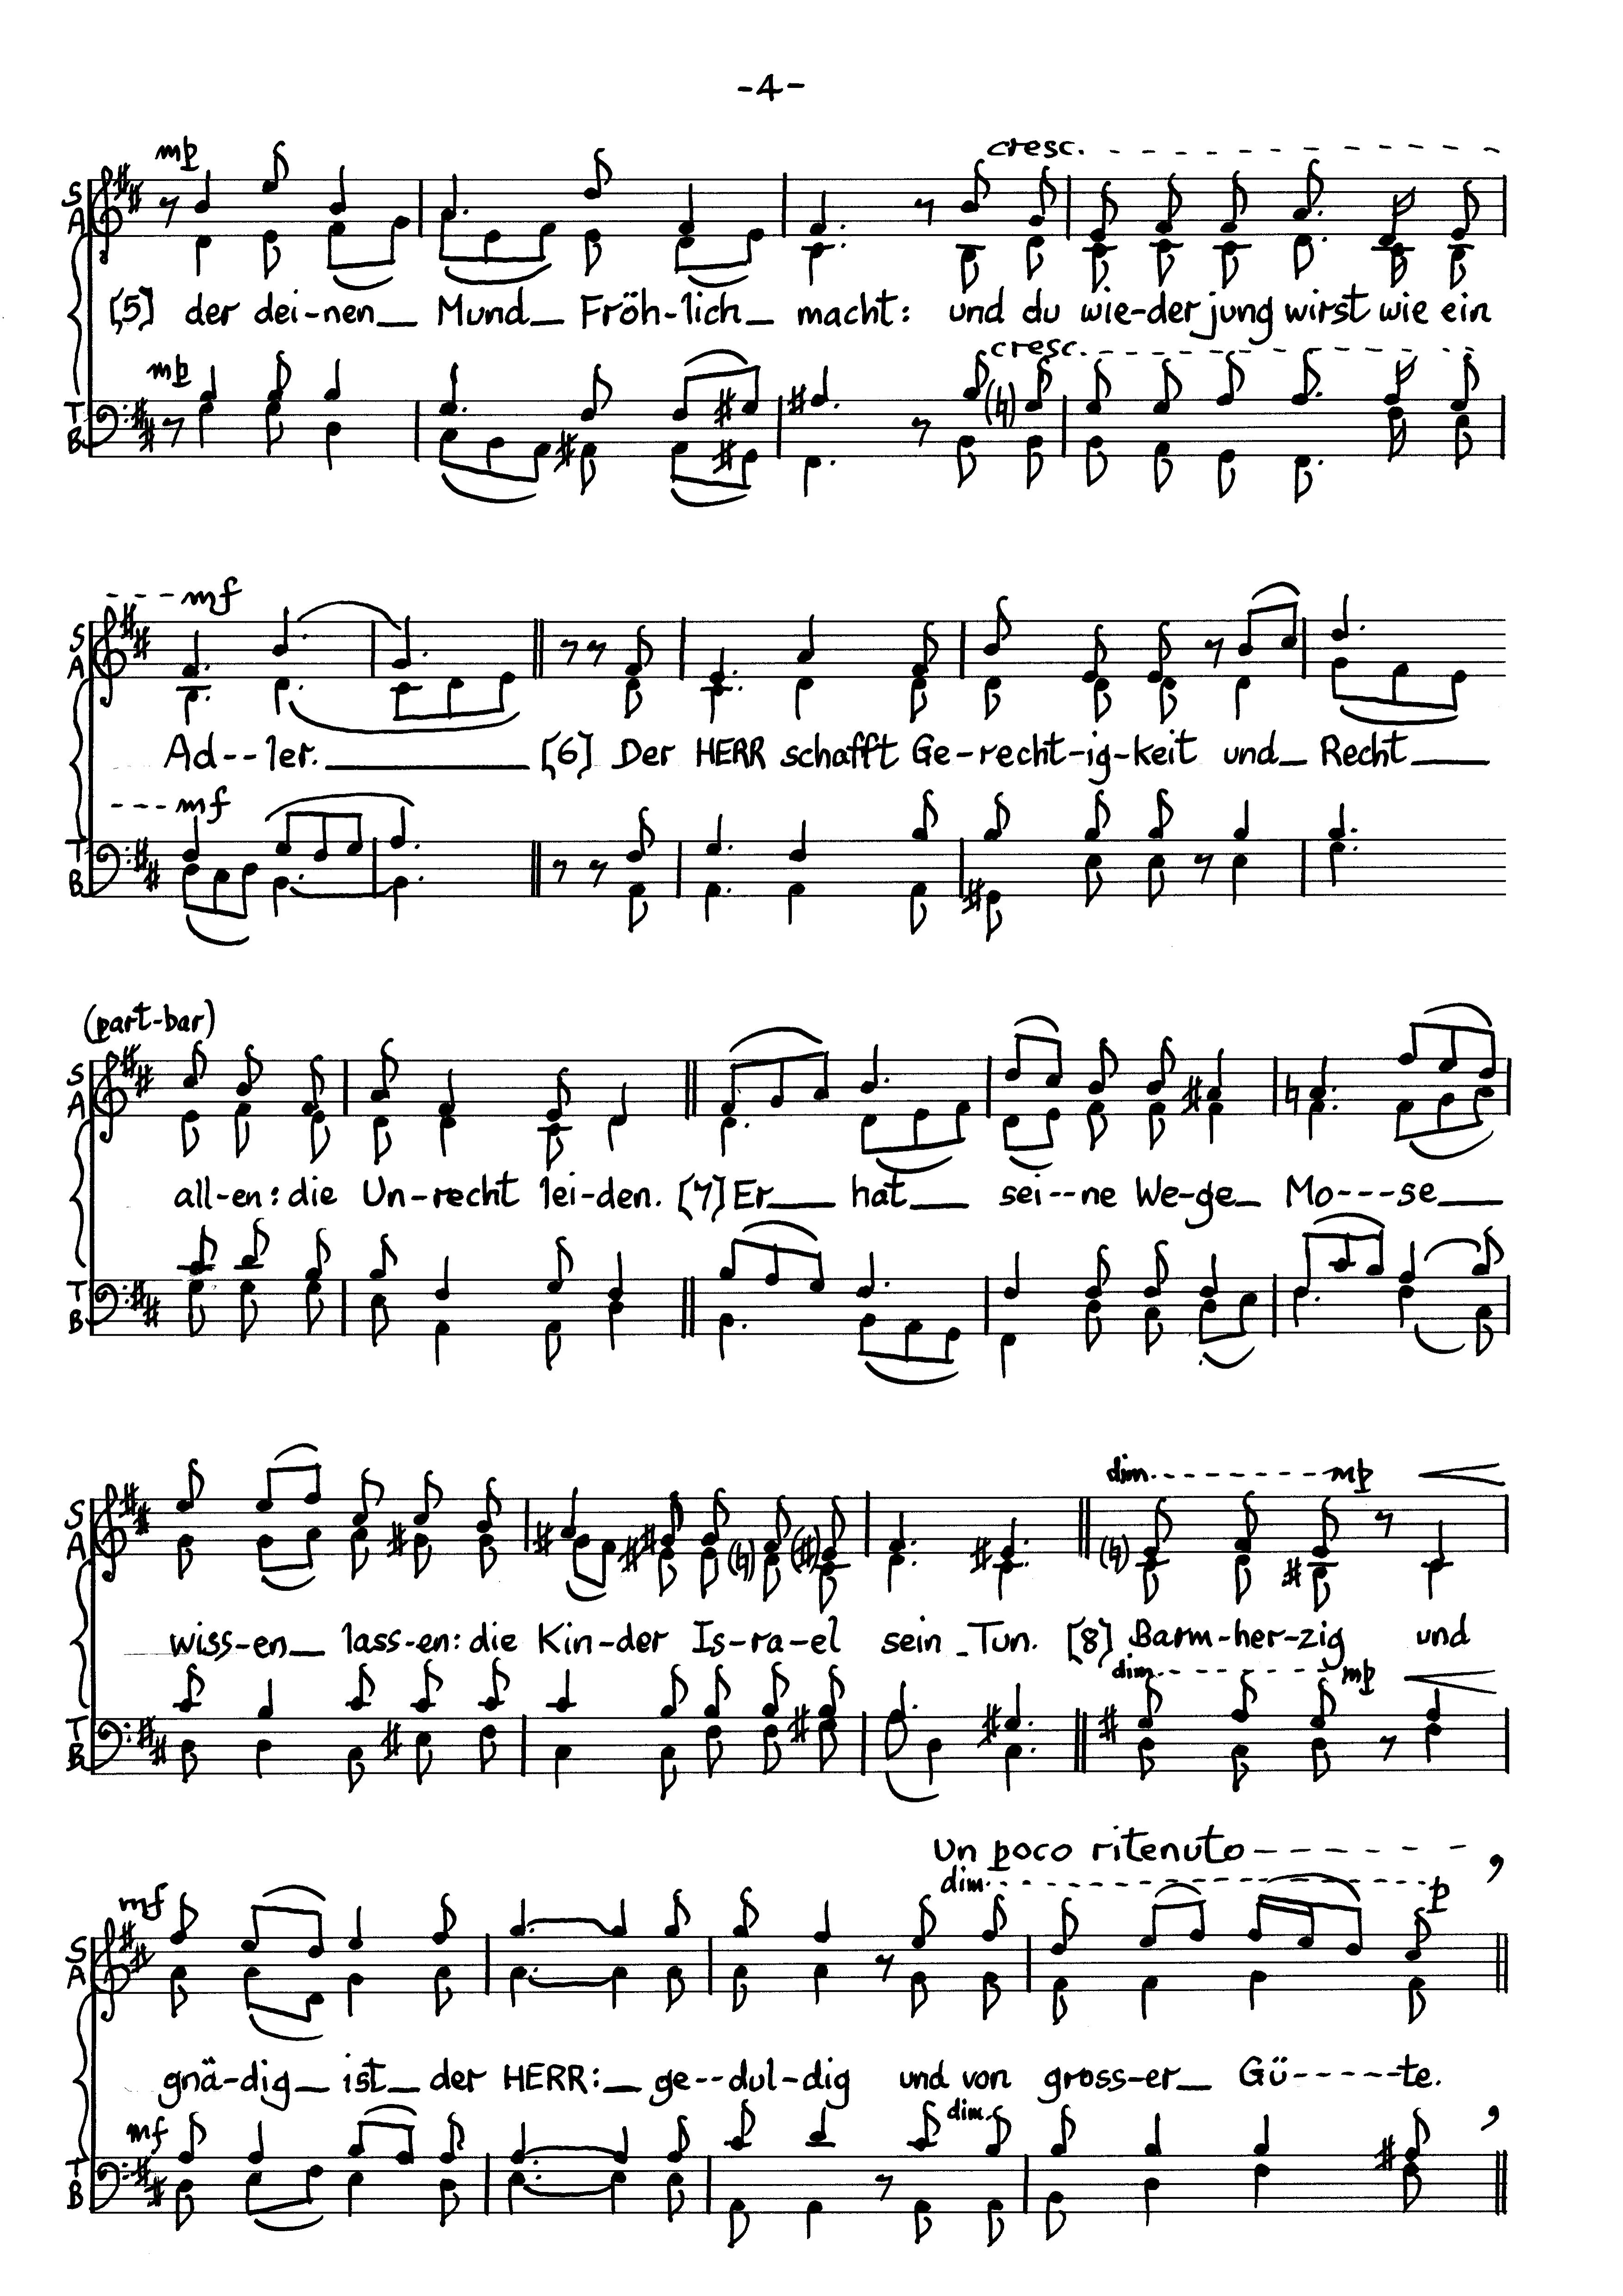 -4-
mp cresc.
S
A
[5] der dei-nen__ Mund_ Fröh-lich_ macht: und du wie-der jung wirst wie ein
mp cresc.
T
B
mf
S
A
Ad--ler.____ [6] Der HERR schafft Ge-recht-ig-keit und_ Recht___
mf
T
B
(part-bar)
S
A
all-en: die Un-recht lei-den. [7] Er___ hat___ sei--ne We-ge_ Mo---se___
T
B
dim. mp
S
A
wiss-en__ lass-en: die Kin-der Is-ra-el sein_Tun. [8] Barm-her-zig und
dim. mp
T
B
un poco ritenuto
mf dim. p ,
S
A
gnä-dig_ ist_ der HERR:_ ge--dul-dig und von gross-er_ Gü-----te.
mf dim. ,
T
B